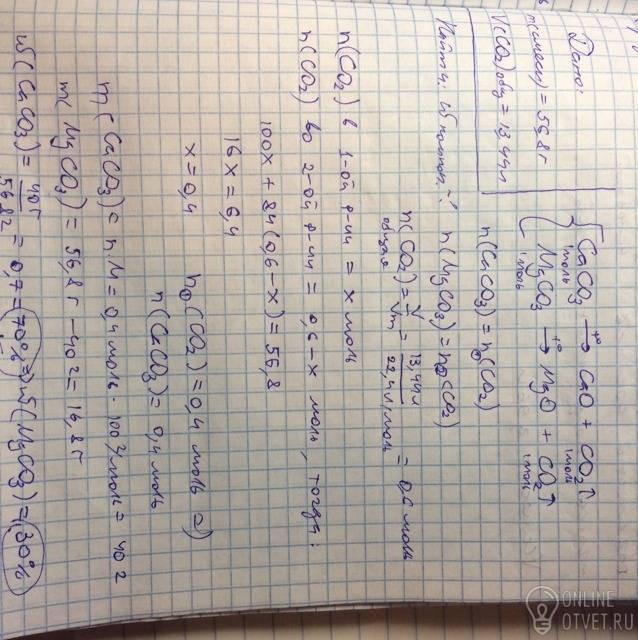 Дано:
m(смеси) = 56,8 г
V(CO₂)общ = 13,44 л
Найти: ω компон. - ?
CaCO₃ →t° CaO + CO₂↑
1 моль 1 моль
MgCO₃ →t° MgO + CO₂↑
1 моль 1 моль
n(CaCO₃) = n①(CO₂)
n(MgCO₃) = n②(CO₂)
n(CO₂) = V/Vm = 13,44 л / 22,4 л/моль = 0,6 моль
общая
n(CO₂) в 1-ой р-ии = x моль
n(CO₂) во 2-ой р-ии = 0,6-x моль, тогда:
100x + 84(0,6-x) = 56,8
16x = 6,4
x = 0,4
n①(CO₂) = 0,4 моль ⇒
n(CaCO₃) = 0,4 моль
m(CaCO₃) = n·M = 0,4 моль · 100 г/моль = 40 г
m(MgCO₃) = 56,8 г - 40 г = 16,8 г
ω(CaCO₃) = 40 г / 56,8 г = 0,7 = 70% ⇒ ω(MgCO₃) = 30%
ONLINE
OTVET.RU